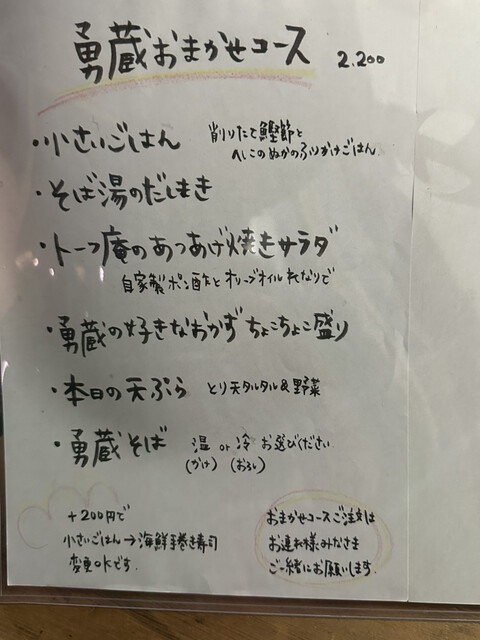 勇蔵おまかせコース 2.200
・小さいごはん 削りたて鰹節と
へしこのぬかのふりかけごはん
・そば湯のだしまき
・トーフ庵のあつあげ焼きサラダ
自家製ポン酢とオリーブオイル
・勇蔵の好きなおかずちょこちょこ盛り
・本日の天ぷら とり天タルタル&野菜
・勇蔵そば 温 or 冷 お選びください
(かけ) (おろし)
+200円で
小さいごはん→海鮮手巻き寿司
変更OKです。
おまかせコースご注文は
お連れ様みなさま
ご一緒にお願いします。